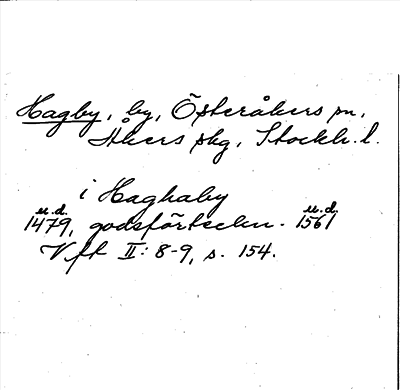 Hagby, by, Österåkers sn,
Åkers skg, Stockh. l.
i Haghaby
u.d. u.d.
1479, godsförteckn. 1561
Vfk II: 8-9, s. 154.